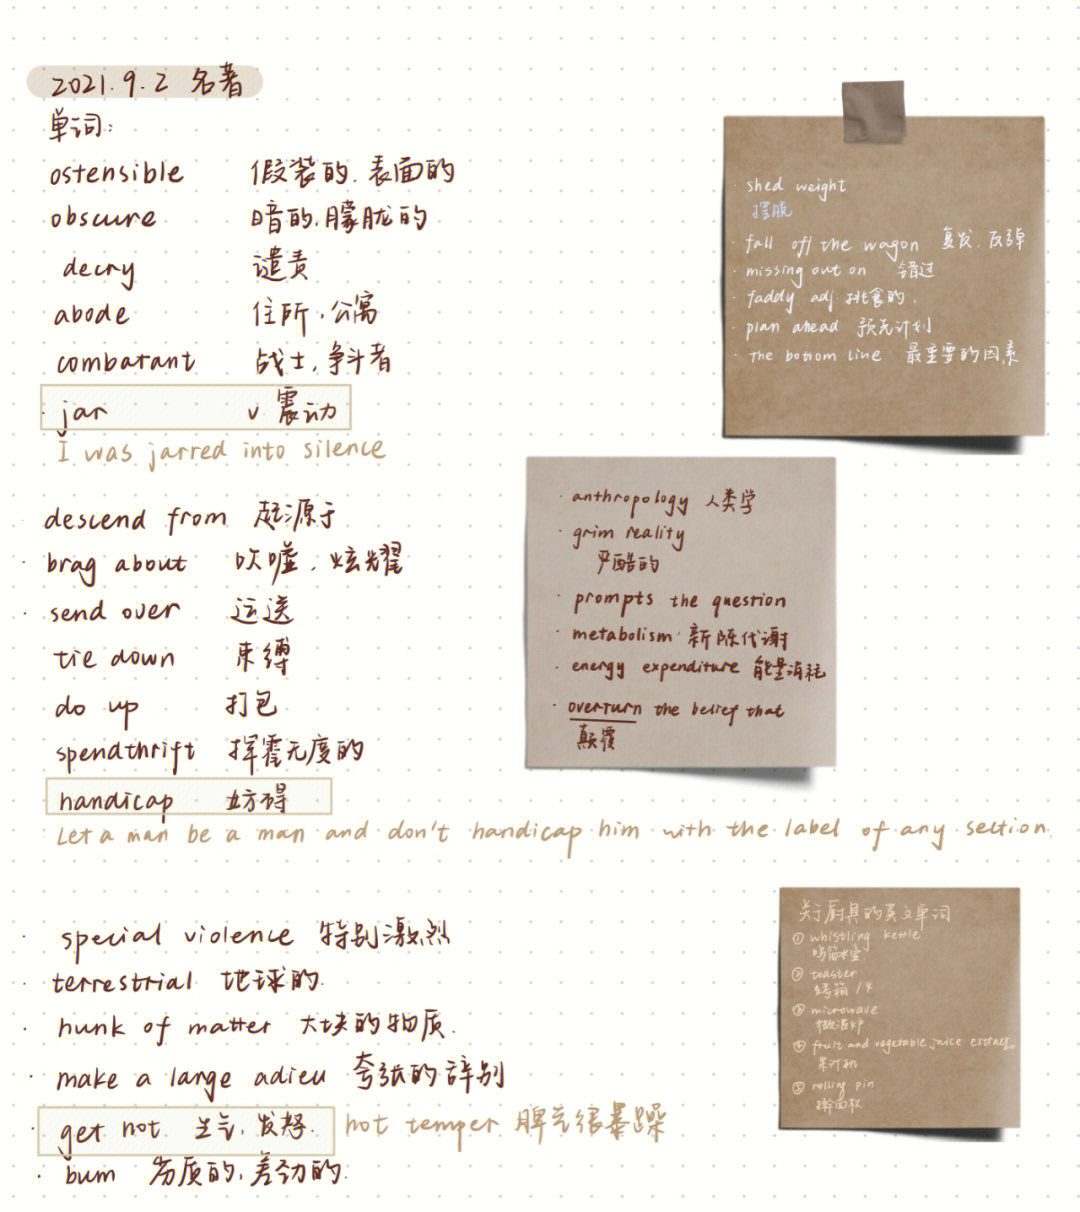 2021.9.2 名著
单词:
ostensible 假装的.表面的
obscure 暗的.朦胧的
decry 谴责
abode 住所.公寓
combatant 战士.争斗者
jar v 震动
I was jarred into silence
descend from 起源于
brag about 吹嘘.炫耀
send over 运送
tie down 束缚
do up 打包
spendthrift 挥霍无度的
handicap 妨碍
Let a man be a man and don't handicap him with the label of any section
special violence 特别激烈
terrestrial 地球的
hunk of matter 大块的物质.
make a large adieu 夸张的辞别
get hot 生气.发怒.
hot temper 脾气很暴躁
bum 劣质的.差劲的.
shed weight
摆脱
fall off the wagon 复发.反弹
missing out on 错过
faddy adj 挑食的.
plan ahead 预先计划
the bottom line 最重要的因素
anthropology 人类学
grim reality
严酷的
prompts the question
metabolism 新陈代谢
energy expenditure 能量消耗
overturn the belief that
颠覆
关于厨具的英文单词
① whistling kettle
鸣笛水壶
② toaster
烤箱
③ microwave
微波炉
④ fruit and vegetable juice
果汁机
⑤ rolling pin
擀面杖